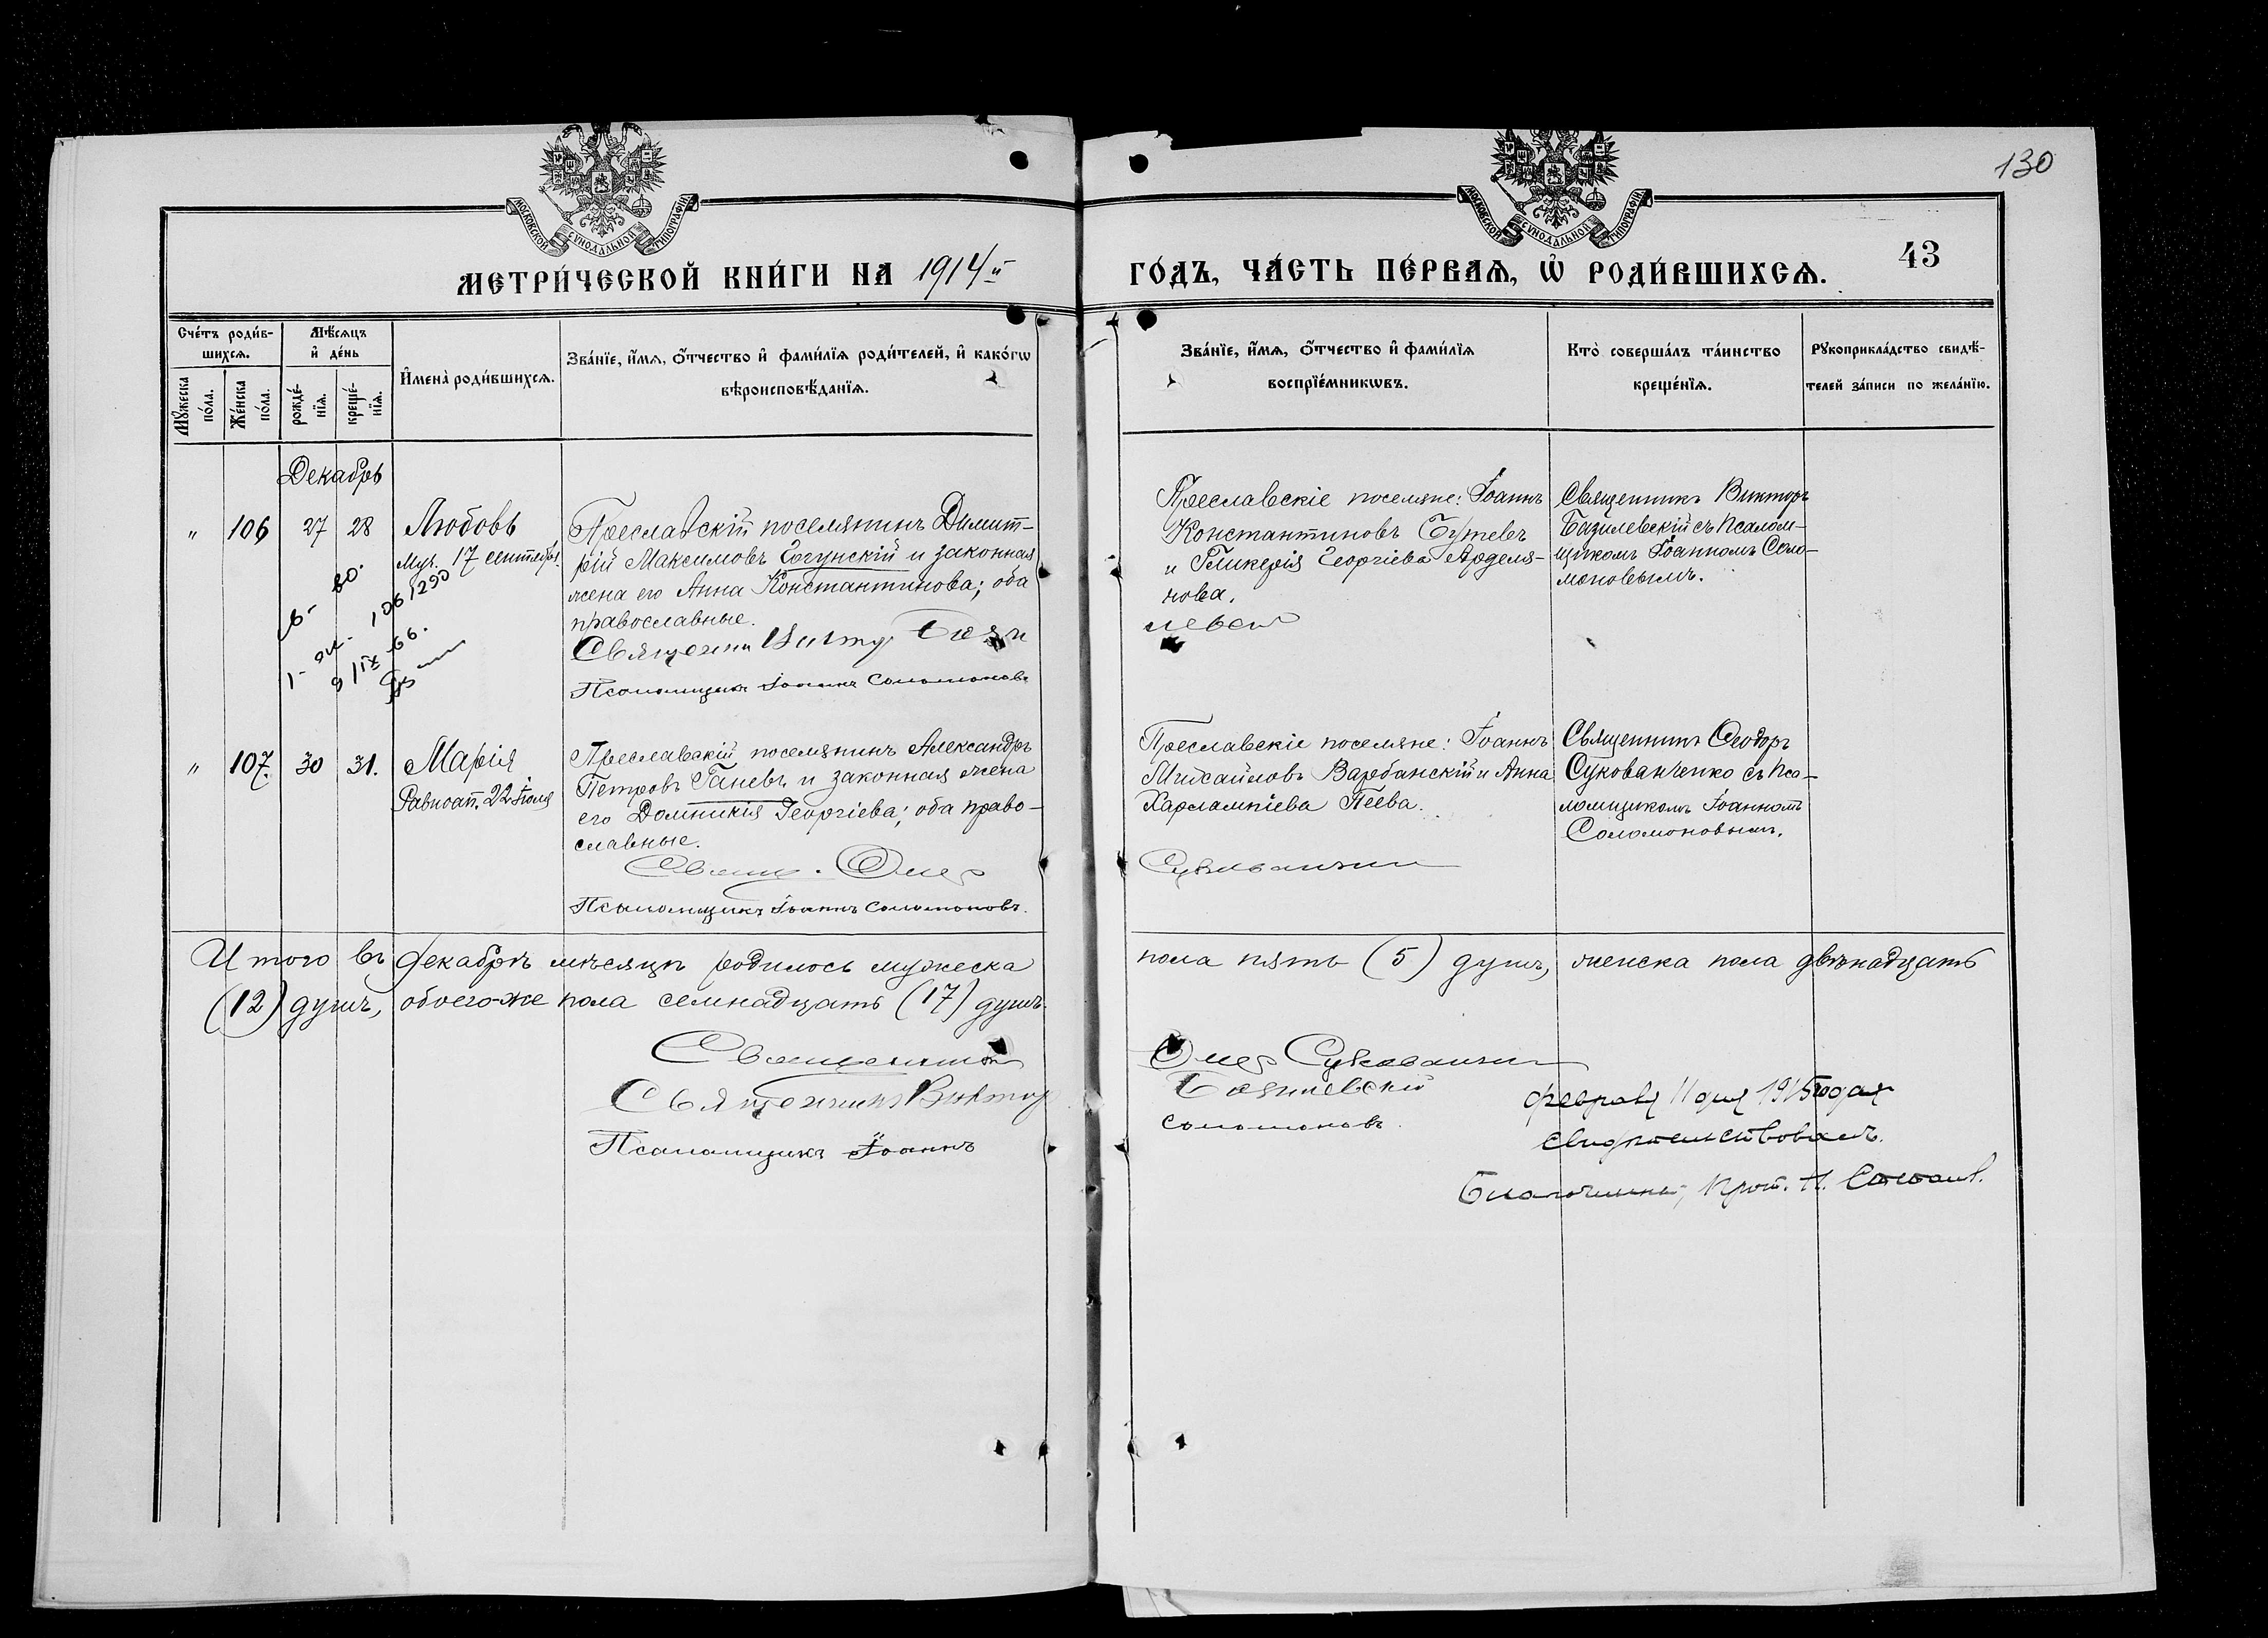 130
МОСКОВСКОЙ СУНОДАЛЬНОЙ ТИПОГРАФІИ
МОСКОВСКОЙ СУНОДАЛЬНОЙ ТИПОГРАФІИ
МЕТРИ́ЧЕСКОЙ КНИ́ГИ НА 1914й
ГО́ДЪ, ЧА́СТЬ ПЕ́РВАѦ, Ѡ҆ РОДИ́ВШИХСѦ. 43
Сче́тъ роди́в-
шихсѧ.
Мꙋ́жеска по́ла.
Же́нска по́ла.
Мѣ́сѧцъ
и҆ де́нь
рожде́-
нїѧ.
креще́-
нїѧ.
И҆мена̀ роди́вшихсѧ.
Зва́нїе, и҆́мѧ, ѻ҆́тчество и҆ фами́лїѧ роди́телей, и҆ како́гѡ
вѣроисповѣ́данїѧ.
Зва́нїе, и҆́мѧ, ѻ҆́тчество и҆ фами́лїѧ
воспрїе́мникѡвъ.
Кто̀ соверша́лъ та́инство
креще́нїѧ.
Рꙋкоприкла́дство свидѣ́-
телей за́писи по жела́нїю.
Декабрь
" 106 27 28 Любовь
Муч. 17 сентября.
106/290
9/IX-66.
Преславскій поселянинъ Димит-
рій Максимовъ Чогунскій и законная
жена его Анна Константинова; оба
православные.
Псаломщикъ Іоаннъ Соломоновъ
Преславскіе поселяне: Іоаннъ
Константиновъ Бутевъ
и Гликерія Георгіева Арделя-
нова.
левскій
Священникъ Викторъ
Базилевскій съ Псалом-
щикомъ Іоанномъ Соло-
моновымъ.
" 107. 30 31. Марія
Равноап. 22 Іюля
Преславскій поселянинъ Александръ
Петровъ Ганевъ и законная жена
его Домникія Георгіева; оба право-
славные.
Псаломщикъ Іоаннъ Соломоновъ.
Преславскіе поселяне: Іоаннъ
Михайловъ Варбанскій и Анна
Харлампіева Пеева.
Священникъ Ѳеодоръ
Сукованченко съ Пса-
ломщикомъ Іоанномъ
Соломоновымъ.
Итого въ декабрѣ мѣсяцѣ родилось мужеска пола пять (5) душъ, женска пола двѣнадцать
(12) душъ, обоего-же пола семнадцать (17) душъ.
Священникъ
Священникъ Викторъ Базилевскій
Псаломщикъ Іоаннъ Соломоновъ.
Февраля 11 дня 1915 года
свидѣтельствовалъ.
Благочинный, Прот.